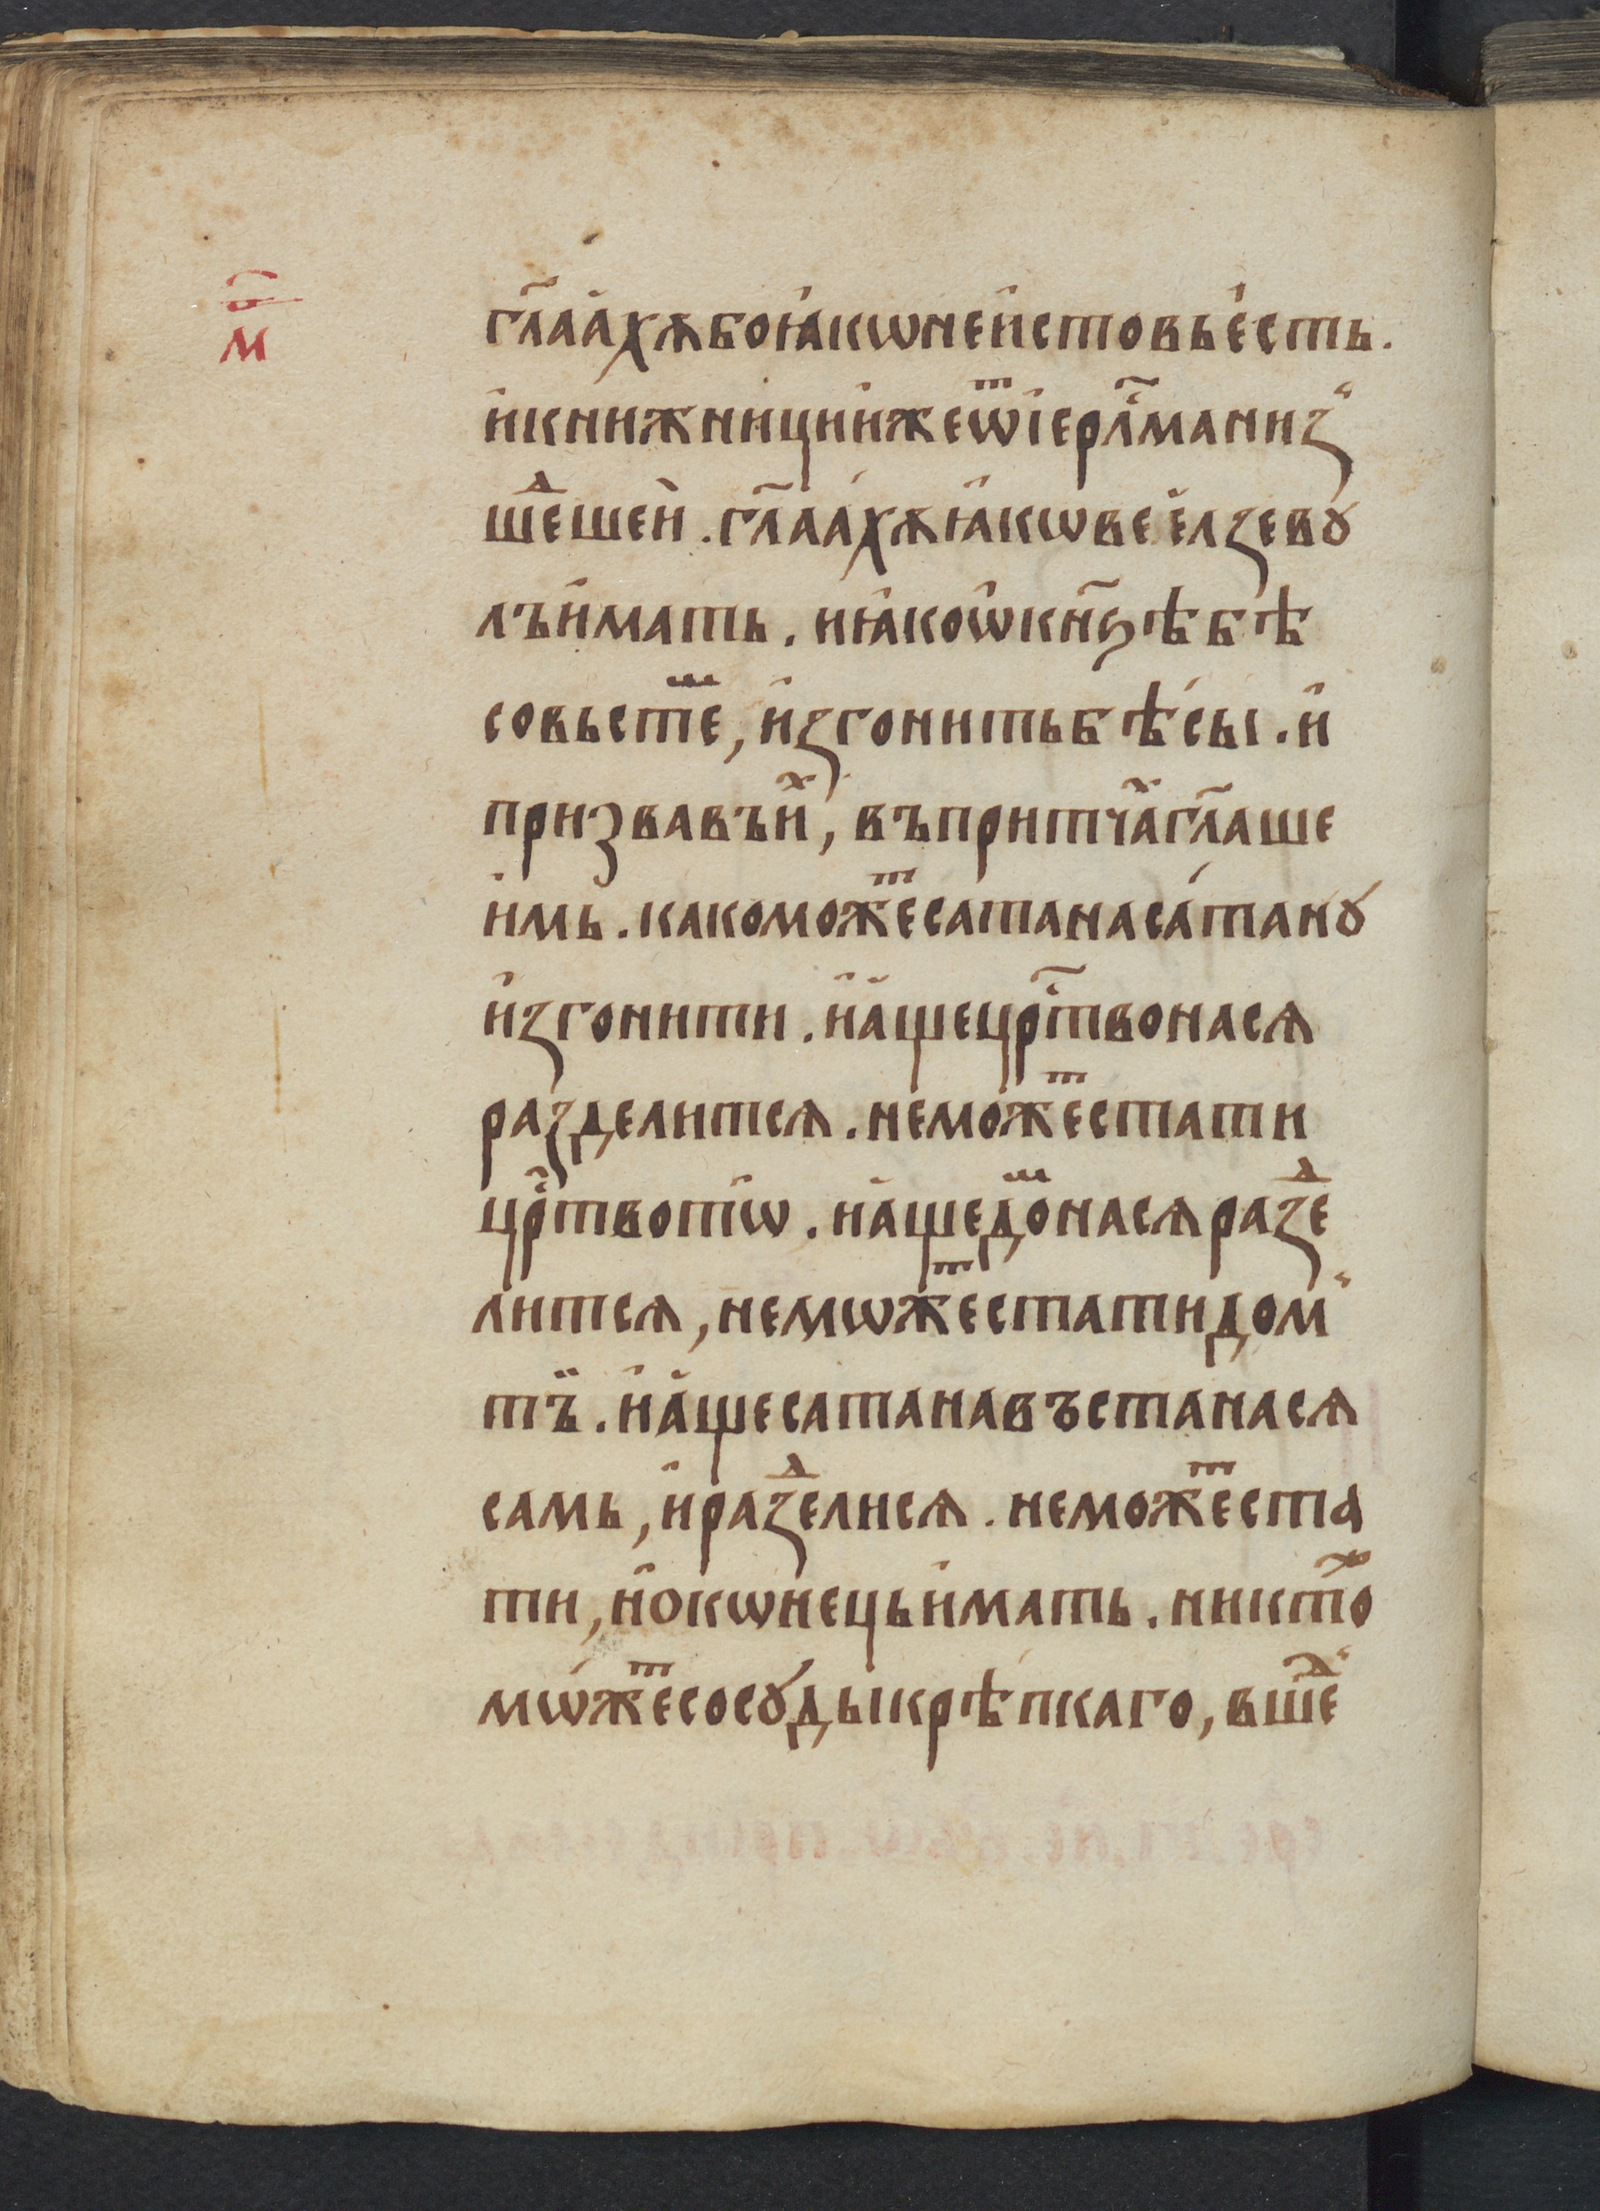 м҃
гл҃аа́хѫбоꙗ҆́кѡнеи҆стовье҆́сть.
и҆книжници́и҆жеѿі҆ерⷭ҇лманиз̾
шеⷣшеи҆. гл҃аа́хѫꙗ҆́кѡвеѐлзевꙋ
лъи҆мать. иꙗ҆́коѡ҆кн҃ѕѣбѣ
совьстеⷨ, и҆згонитьбѣ́сы. и҆
призвавъи҆ⷯ, въпритчаⷯгл҃аше
и҆мь. какоможеⷮсатанаса́танꙋ
и҆згонити. и҆а҆щецрⷭ҇твонасѧ
разделитсѧ. неможеⷮстати
црⷭ҇твотѡ҆. и҆а҆щедоⷨнасѧразⷣе
литсѧ, немѡжеⷮстатидом̾
тъ̈. и҆а҆щесатанавъстанасѧ
самь, и҆разⷣелисѧ. неможеⷮста
ти, но҆кѡнецьи҆мать. никтоⷤ
мѡ́жеⷮсосꙋ́дыкрѣ́пкаго, вшеⷣ